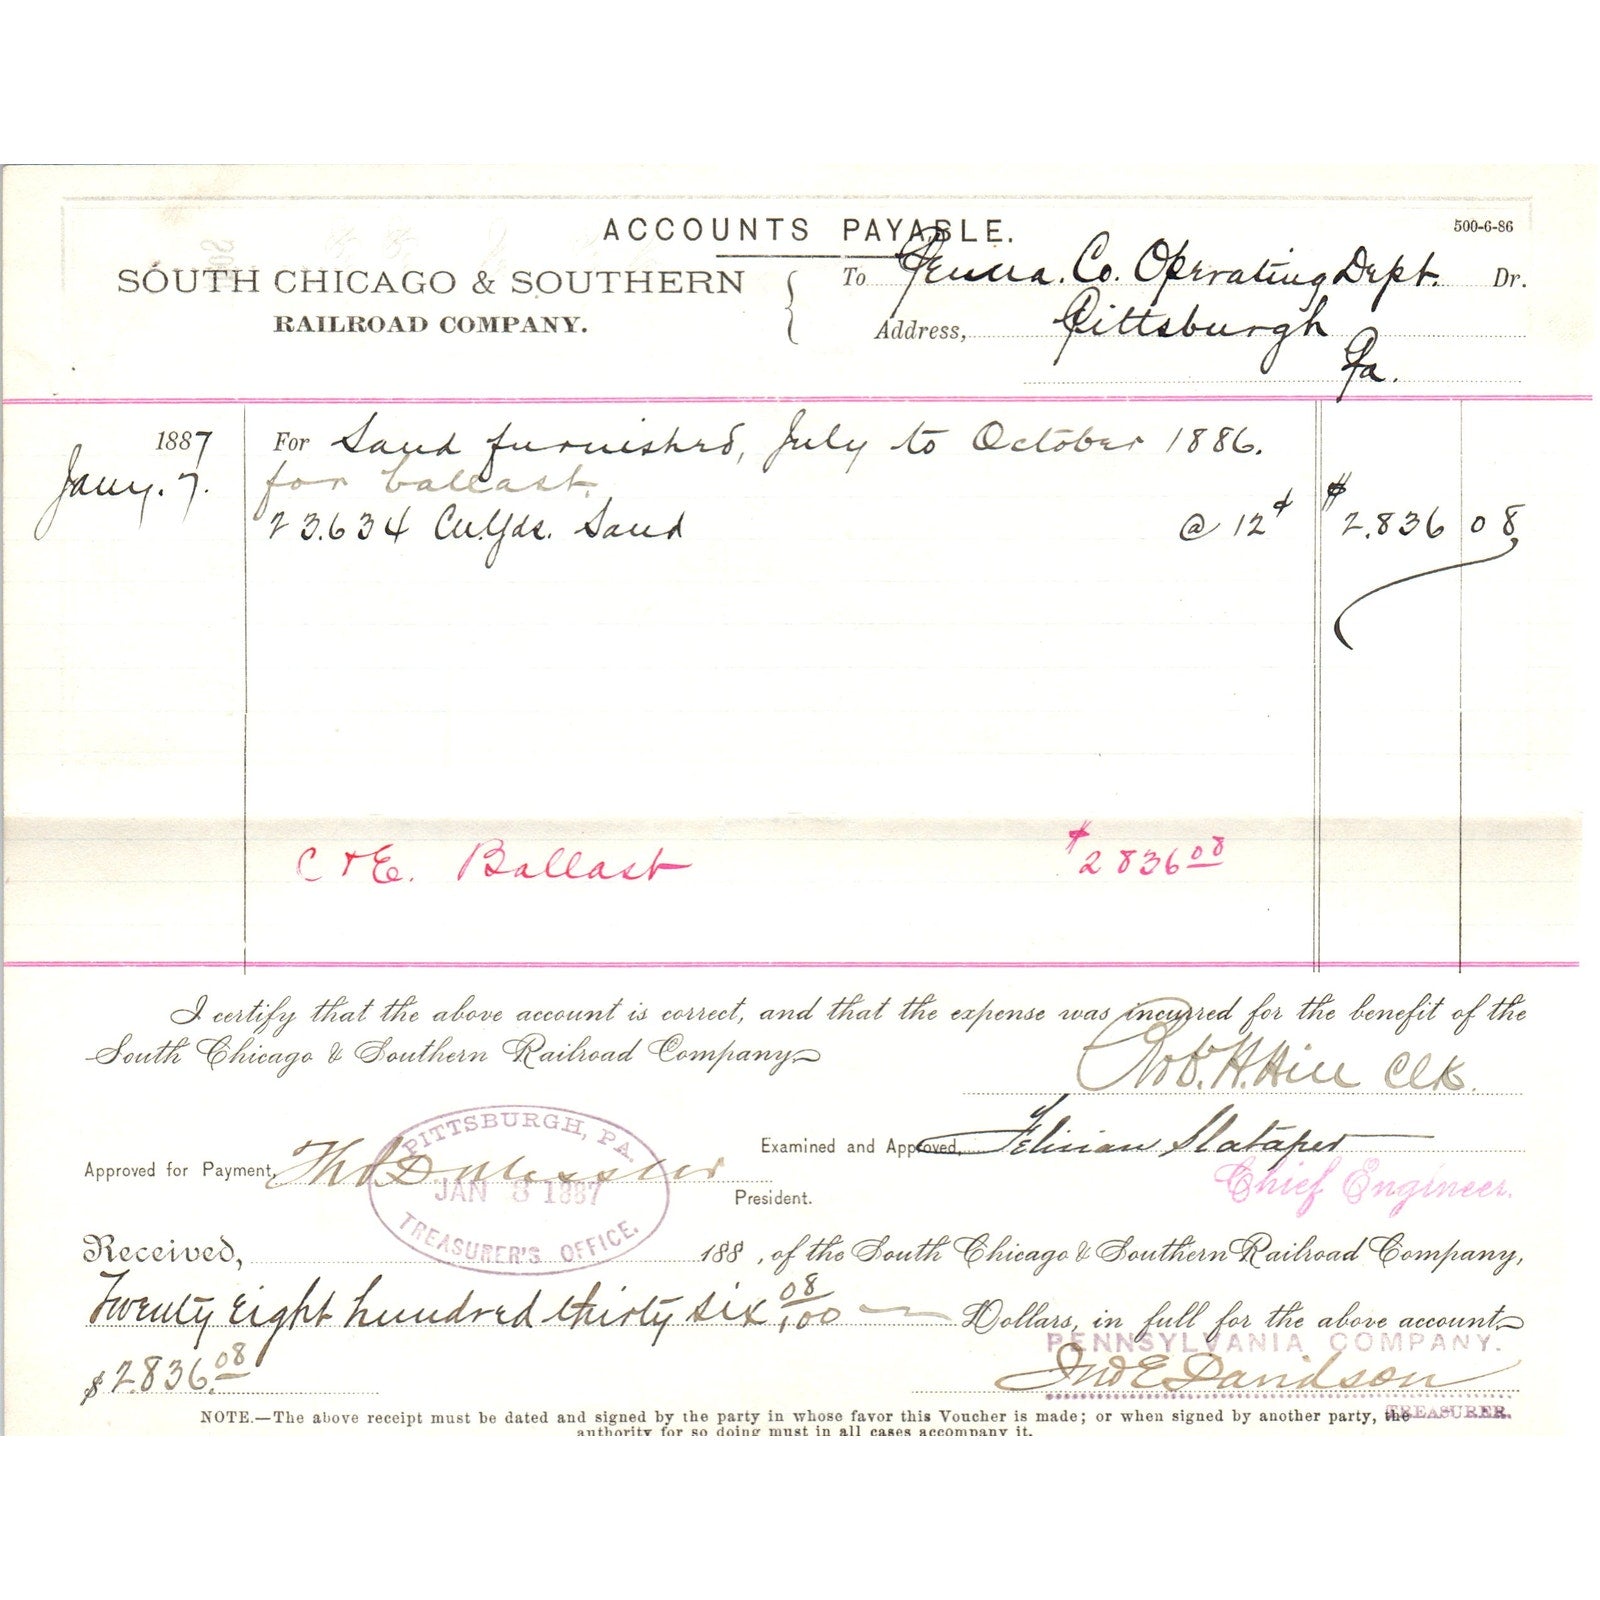 ACCOUNTS PAYABLE.
500-6-86
SOUTH CHICAGO & SOUTHERN
RAILROAD COMPANY.
To Penna. Co. Operating Dept. Dr.
Address, Pittsburgh
Pa.
1887 For Sand furnished, July to October 1886.
Jany. 7. for ballast.
23.634 Cu.Yds. Sand @ 12¢ $2.836 08
C & E. Ballast $2836 08
I certify that the above account is correct, and that the expense was incurred for the benefit of the
South Chicago & Southern Railroad Company
Robt. H. Hill Clk.
Examined and Approved, Felician Slataper
Chief Engineer.
Approved for Payment, Tho D Messler
President.
PITTSBURGH, PA.
JAN 8 1887
TREASURER'S OFFICE.
Received, 188 , of the South Chicago & Southern Railroad Company,
Twenty eight hundred thirty six 08/100 Dollars, in full for the above account
PENNSYLVANIA COMPANY.
$2.836.08 Jno E Davidson
TREASURER.
NOTE.—The above receipt must be dated and signed by the party in whose favor this Voucher is made; or when signed by another party, the
authority for so doing must in all cases accompany it.